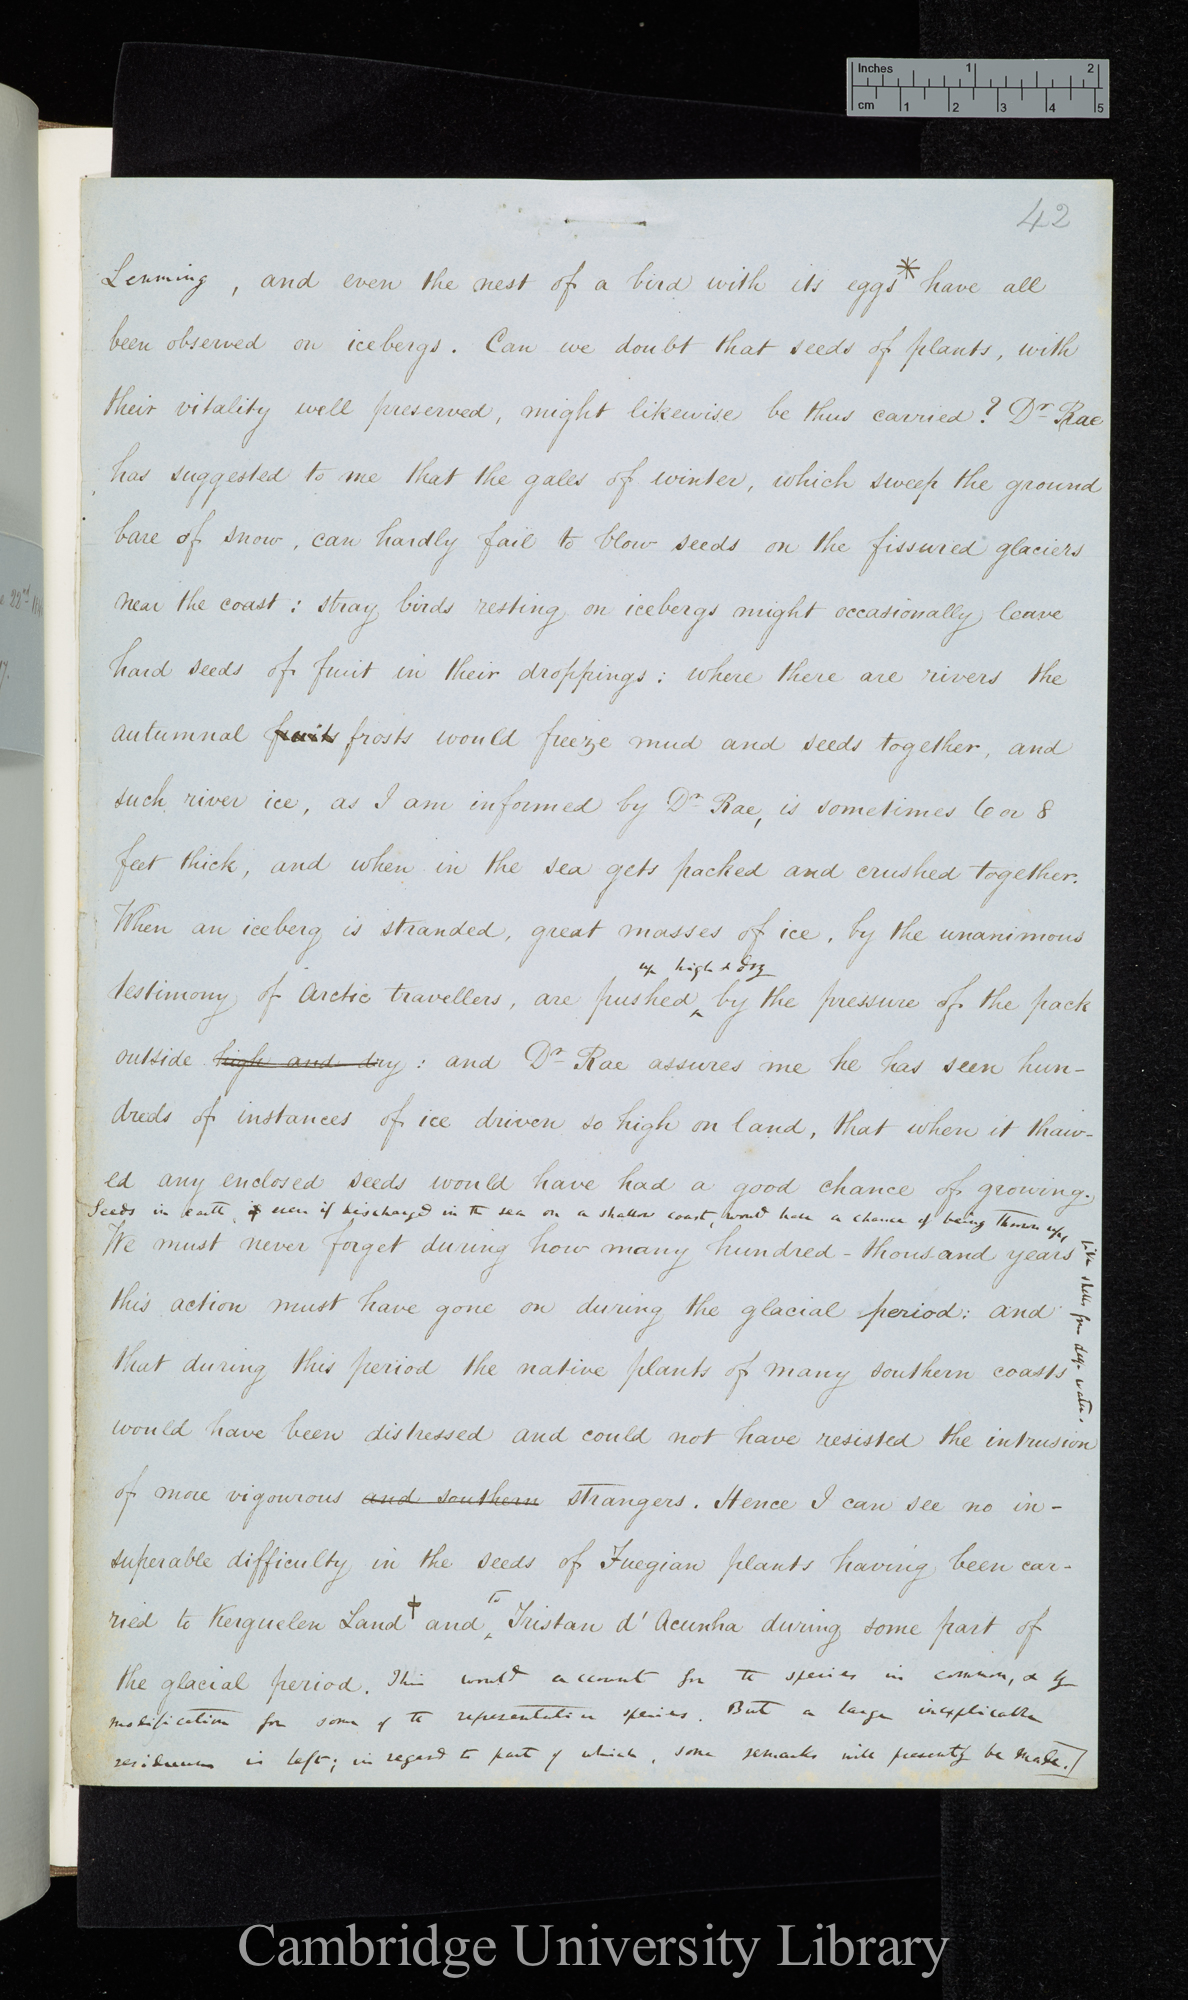 Inches 1 2
cm 1 2 3 4 5
42
Lemming, and even the nest of a bird with its eggs* have all
been observed on icebergs. Can we doubt that seeds of plants, with
their vitality well preserved, might likewise be thus carried? Dr Rae
has suggested to me that the gales of winter, which sweep the ground
bare of snow, can hardly fail to blow seeds on the fissured glaciers
near the coast: stray birds resting on icebergs might occasionally leave
hard seeds of fruit in their droppings: where there are rivers the
autumnal fruits frosts would freeze mud and seeds together, and
such river ice, as I am informed by Dr Rae, is sometimes 6 or 8
feet thick, and when in the sea gets packed and crushed together.
When an iceberg is stranded, great masses of ice, by the unanimous
up high & dry
testimony of Arctic travellers, are pushed ‸ by the pressure of the pack
outside high and dry: and Dr Rae assures me he has seen hun-
dreds of instances of ice driven so high on land, that when it thaw-
ed any enclosed seeds would have had a good chance of growing.
Seeds in earth, if even if discharged in the sea on a shallow coast, would have a chance of being thrown up,
like shells from deep water.
We must never forget during how many hundred-thousand years
this action must have gone on during the glacial period: and
that during this period the native plants of many southern coasts
would have been distressed and could not have resisted the intrusion
of more vigourous and southern strangers. Hence I can see no in-
superable difficulty in the seeds of Fuegian plants having been car-
to
ried to Kerguelen Land† and ‸ Tristan d'Acunha during some part of
the glacial period. This would account for the species in common, & by
modification for some of the representative species. But a large inexplicable
residuum is left; in regard to part of which, some remarks will presently be made.]
22nd
Cambridge University Library